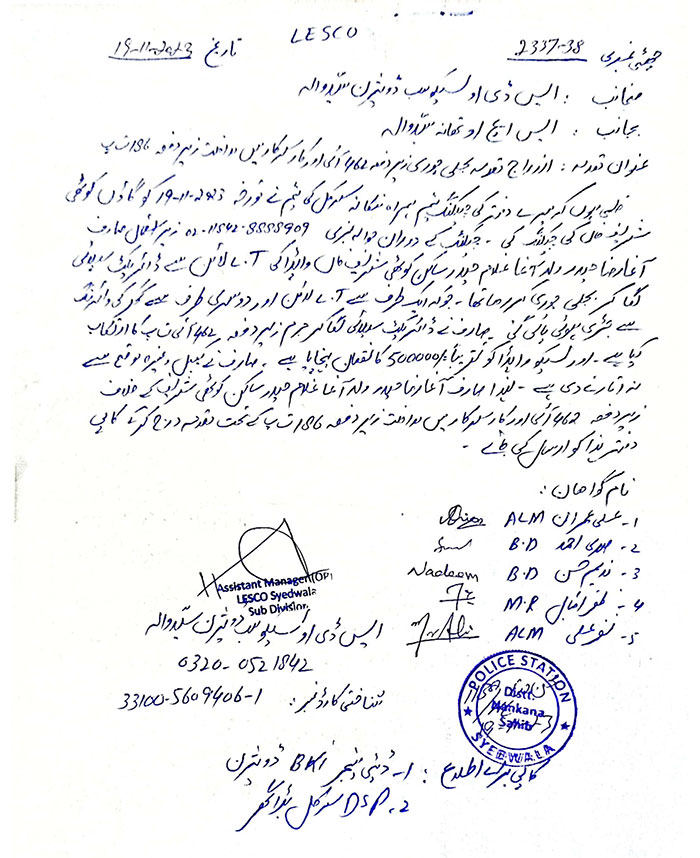 LESCO
چھٹی نمبری 2337-38 تاریخ 19-11-2023
منجانب : ایس ڈی او لیسکو سب ڈویژن سیدوالہ
بجانب : ایس ایچ او تھانہ سیدوالہ
عنوان مقدمہ : اندراج مقدمہ بجلی چوری زیر دفعہ 462 آئی اور کار سرکار میں مداخلت زیر دفعہ 186 ت پ
جناب ہوں کہ میرے دفتر کی چیکنگ ٹیم ہمراہ ننکانہ سرکل کی ٹیم نے مورخہ 19-11-2023 کو گاؤں کوٹھی
شریف خاں کی چیکنگ کی ۔ چیکنگ کے دوران حوالہ نمبری 02-11642-8888909 زیر استعمال صارف
آغا رضا حیدر ولد آغا غلام حیدر ساکن کوٹھی شریف خاں واپڈا کی L.T لائن سے ڈائریکٹ سپلائی
لگا کر بجلی چوری کر رہا تھا ۔ جو کہ ایک طرف سے L.T لائن اور دوسری طرف سے گھر کی وائرنگ
سے جڑی ہوئی پائی گئی ۔ صارف نے ڈائریکٹ سپلائی لگا کر جرم زیر دفعہ 462 آئی ت پ کا ارتکاب
کیا ہے ۔ اور لیسکو واپڈا کو تقریباً 500000/ کا نقصان پہنچایا ہے ۔ صارف نے کیبل وغیرہ موقع سے
نہ اتارنے دی ہے ۔ لہذا صارف آغا رضا حیدر ولد آغا غلام حیدر ساکن کوٹھی شریف کے خلاف
زیر دفعہ 462 آئی اور کار سرکار میں مداخلت زیر دفعہ 186 ت پ کے تحت مقدمہ درج کر کے کاپی
دفتر ہذا کو ارسال کی جائے ۔
نام گواہان :
1- علی عمران ALM
2- احمد B.D
3- ندیم حسن B.D Nadeem
4- ظفر اقبال M.R
5- علی ALM
Assistant Manager(OP)
LESCO Syedwala
Sub Division
ایس ڈی او لیسکو سب ڈویژن سیدوالہ
0320-0521842
شناختی کارڈ نمبر : 33100-5609406-1
POLICE STATION
Distt.
Nankana
Sahib
SYEDWALA
کاپی برائے اطلاع : 1- ڈپٹی منیجر BKI ڈویژن
2. DSP سرکل بڑا گھر